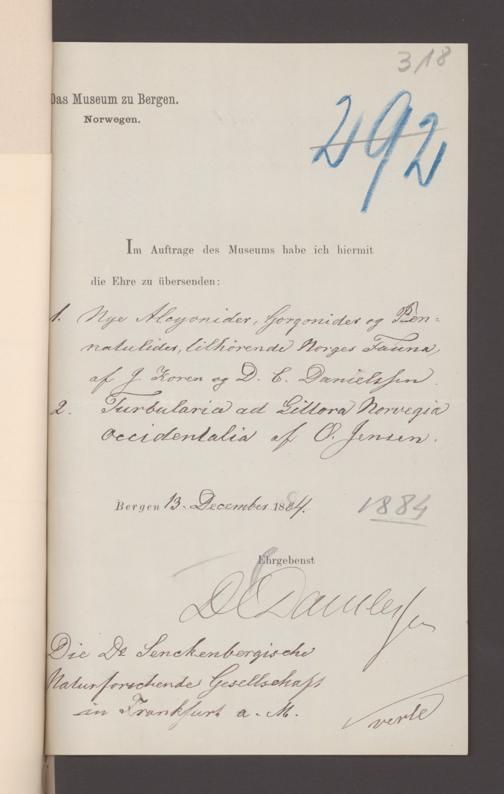 318
Das Museum zu Bergen.
Norwegen.
292
Im Auftrage des Museums habe ich hiermit
die Ehre zu übersenden:
1. Nye Alcyonider, Gorgonider og Pen=
natulider, tilhörende Norges Fauna,
af J. Koren og D. C. Danielssen.
2. Turbellaria ad Littora Norvegia
occidentalia af O. Jensen.
Bergen 13. December 1884.
1884
Ehrgebenst
D C Danielssen
Die Dr Senckenbergische
Naturforschende Gesellschaft
in Frankfurt a. M.